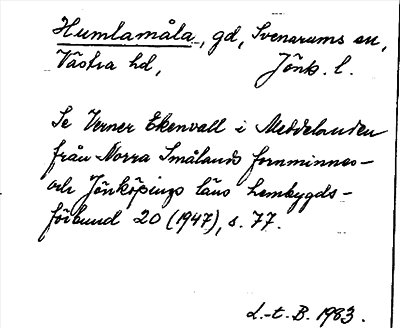 Humlamåla, gd, Svenarums sn,
Västra hd, Jönk. l.
Se Verner Ekenvall i Meddelanden
från Norra Smålands fornminnes-
och Jönköpings läns hembygds-
förbund 20 (1947), s. 77.
L.-t. B. 1983.